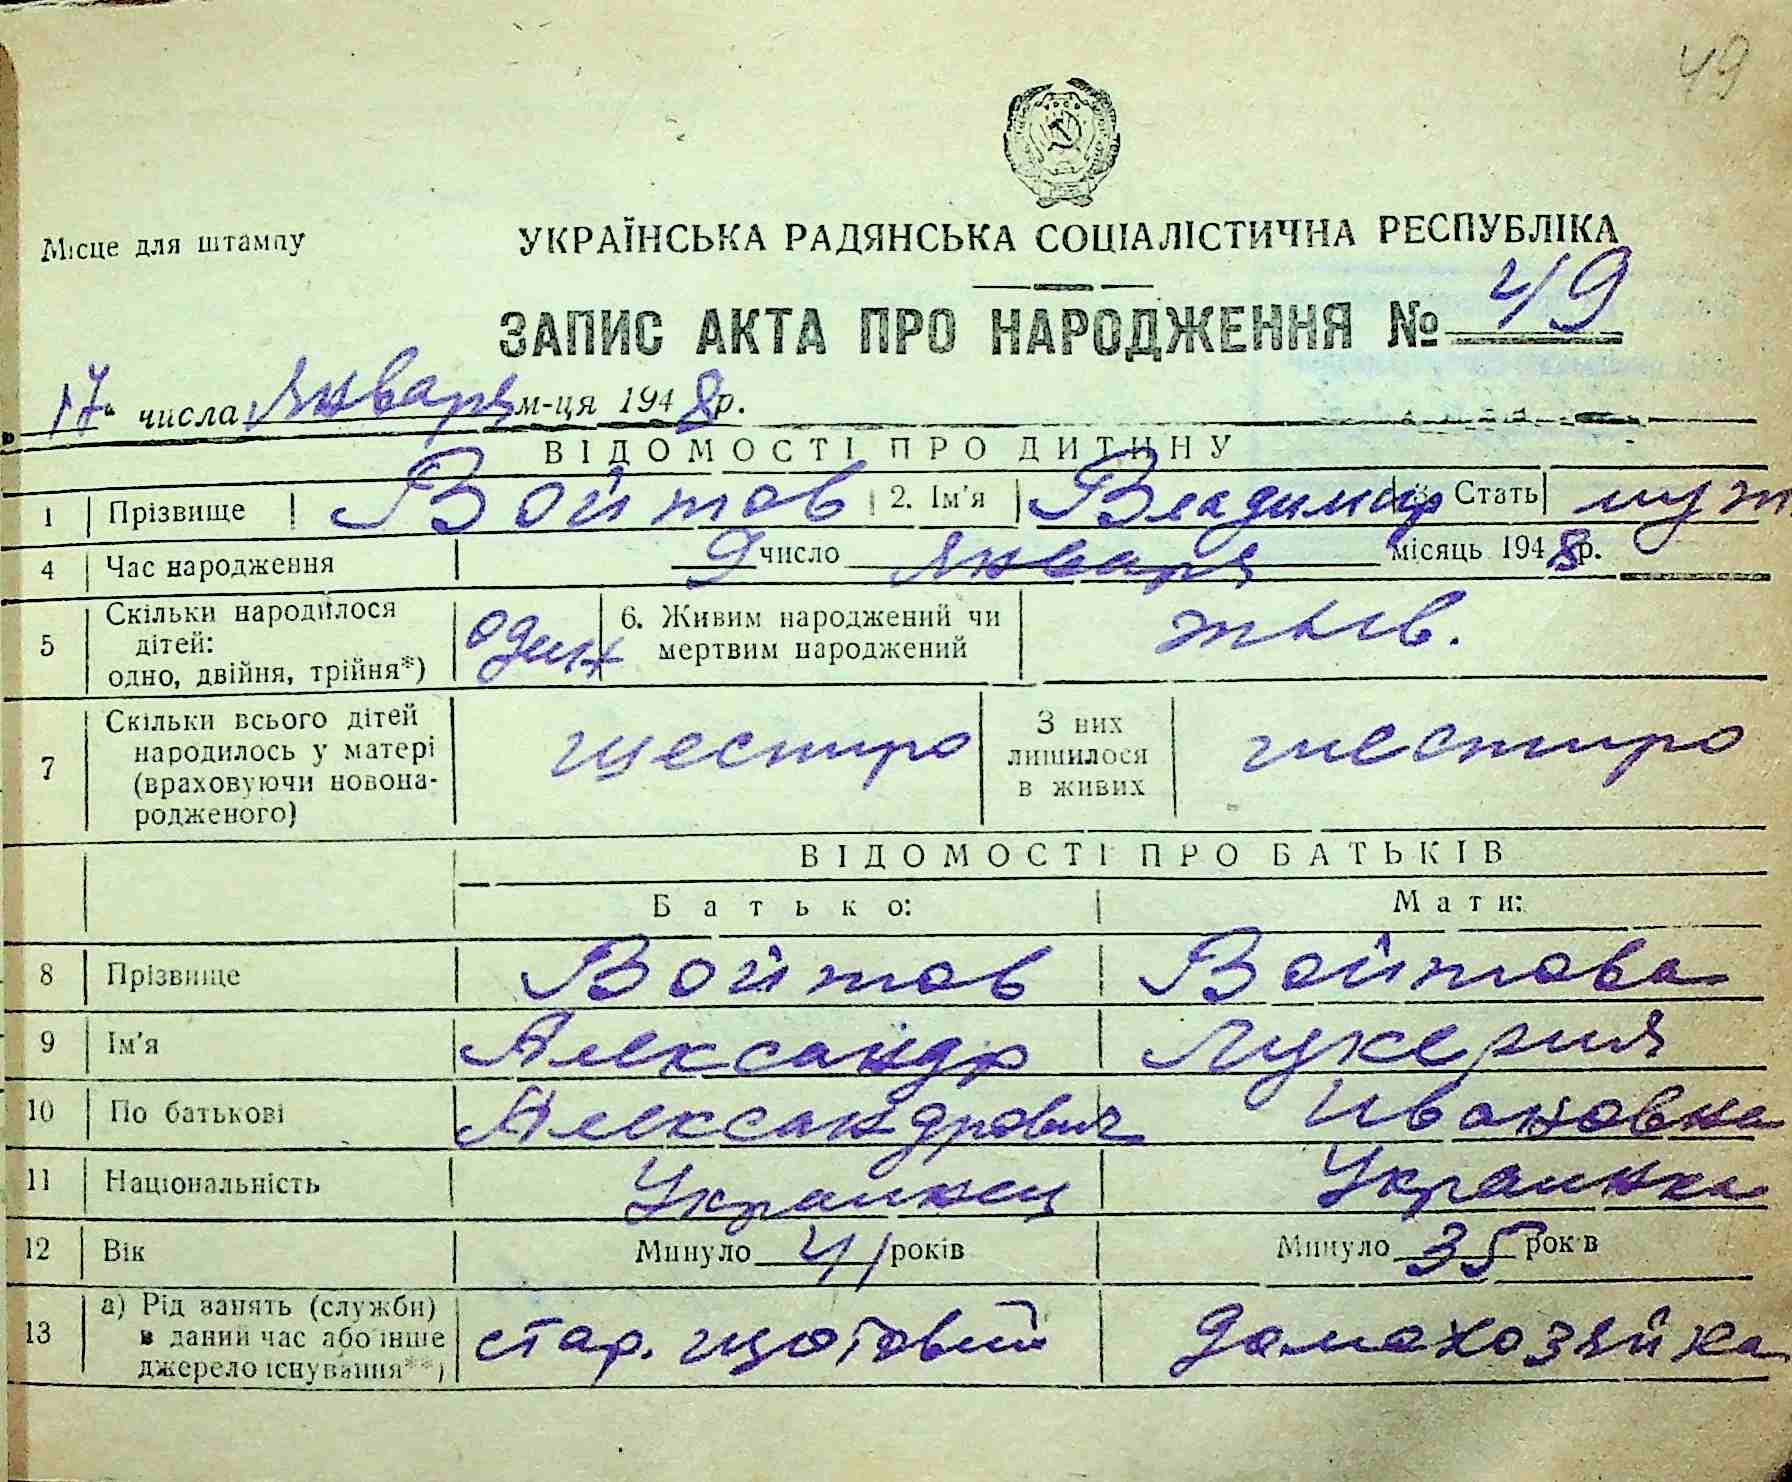 49
Місце для штампу
УКРАЇНСЬКА РАДЯНСЬКА СОЦІАЛІСТИЧНА РЕСПУБЛІКА
ЗАПИС АКТА ПРО НАРОДЖЕННЯ № 49
17 числа Января м-ця 1948 р.
ВІДОМОСТІ ПРО ДИТИНУ
1 Прізвище Войтов 2. Ім'я Владимир 3. Стать муж
4 Час народження 9 число Января місяць 1948 р.
5 Скільки народилося дітей: одно, двійня, трійня*) один 6. Живим народжений чи мертвим народжений жив.
7 Скільки всього дітей народилось у матері (враховуючи новонародженого) шестиро З них лишилося в живих шестиро
ВІДОМОСТІ ПРО БАТЬКІВ
Батько: Мати:
8 Прізвище Войтов Войтова
9 Ім'я Александр Лукерия
10 По батькові Александрович Ивановна
11 Національність Украинец Украинка
12 Вік Минуло 41 років Минуло 35 років
13 а) Рід занять (служби) в даний час або інше джерело існування**) стар. щотовий домохозяйка